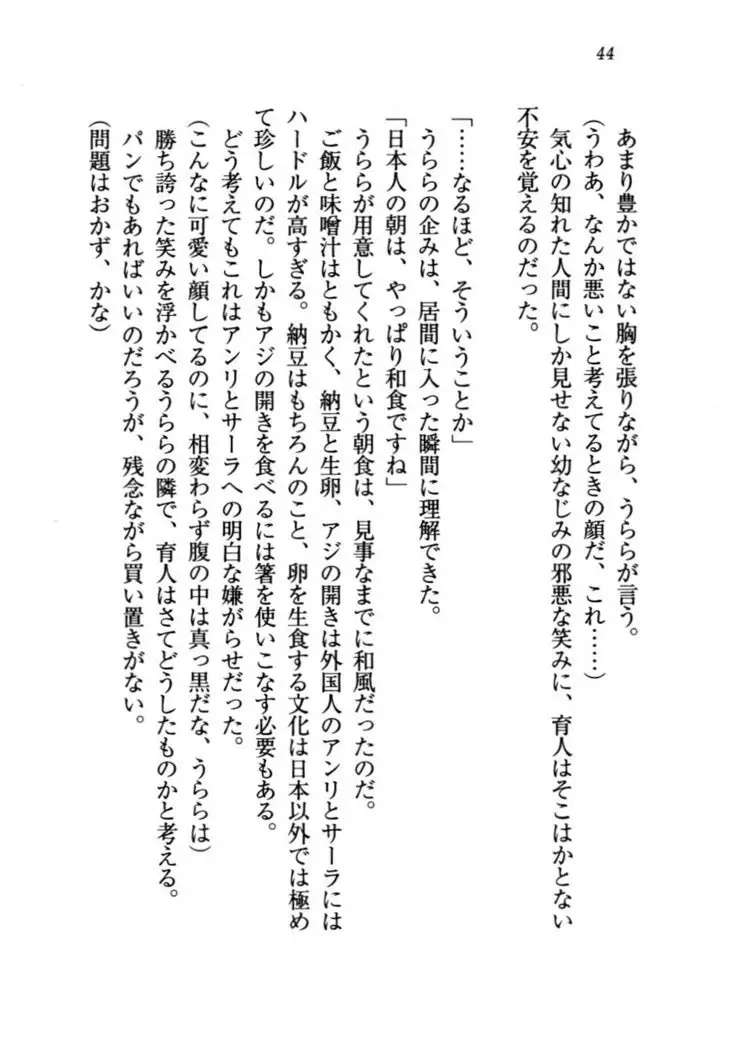 44
あまり豊かではない胸を張りながら、うららが言う。
(うわあ、なんか悪いこと考えてるときの顔だ、これ……)
気心の知れた人間にしか見せない幼なじみの邪悪な笑みに、育人はそこはかとない
不安を覚えるのだった。
「……なるほど、そういうことか」
うららの企みは、居間に入った瞬間に理解できた。
「日本人の朝は、やっぱり和食ですね」
うららが用意してくれたという朝食は、見事なまでに和風だったのだ。
ご飯と味噌汁はともかく、納豆と生卵、アジの開きは外国人のアンリとサーラには
ハードルが高すぎる。納豆はもちろんのこと、卵を生食する文化は日本以外では極め
て珍しいのだ。しかもアジの開きを食べるには箸を使いこなす必要もある。
どう考えてもこれはアンリとサーラへの明白な嫌がらせだった。
(こんなに可愛い顔してるのに、相変わらず腹の中は真っ黒だな、うららは)
勝ち誇った笑みを浮かべるうららの隣で、育人はさてどうしたものかと考える。
パンでもあればいいのだろうが、残念ながら買い置きがない。
(問題はおかず、かな)